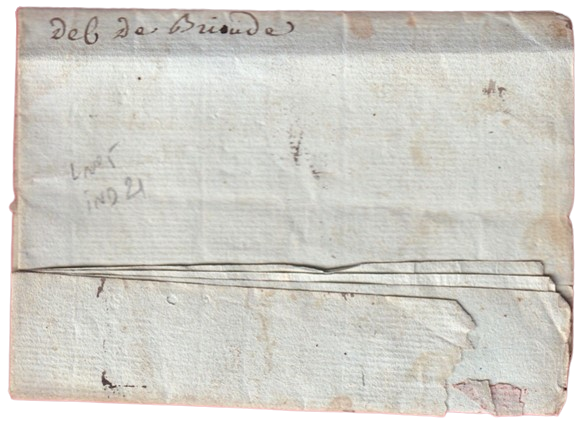 deb de Brioude
IND 21